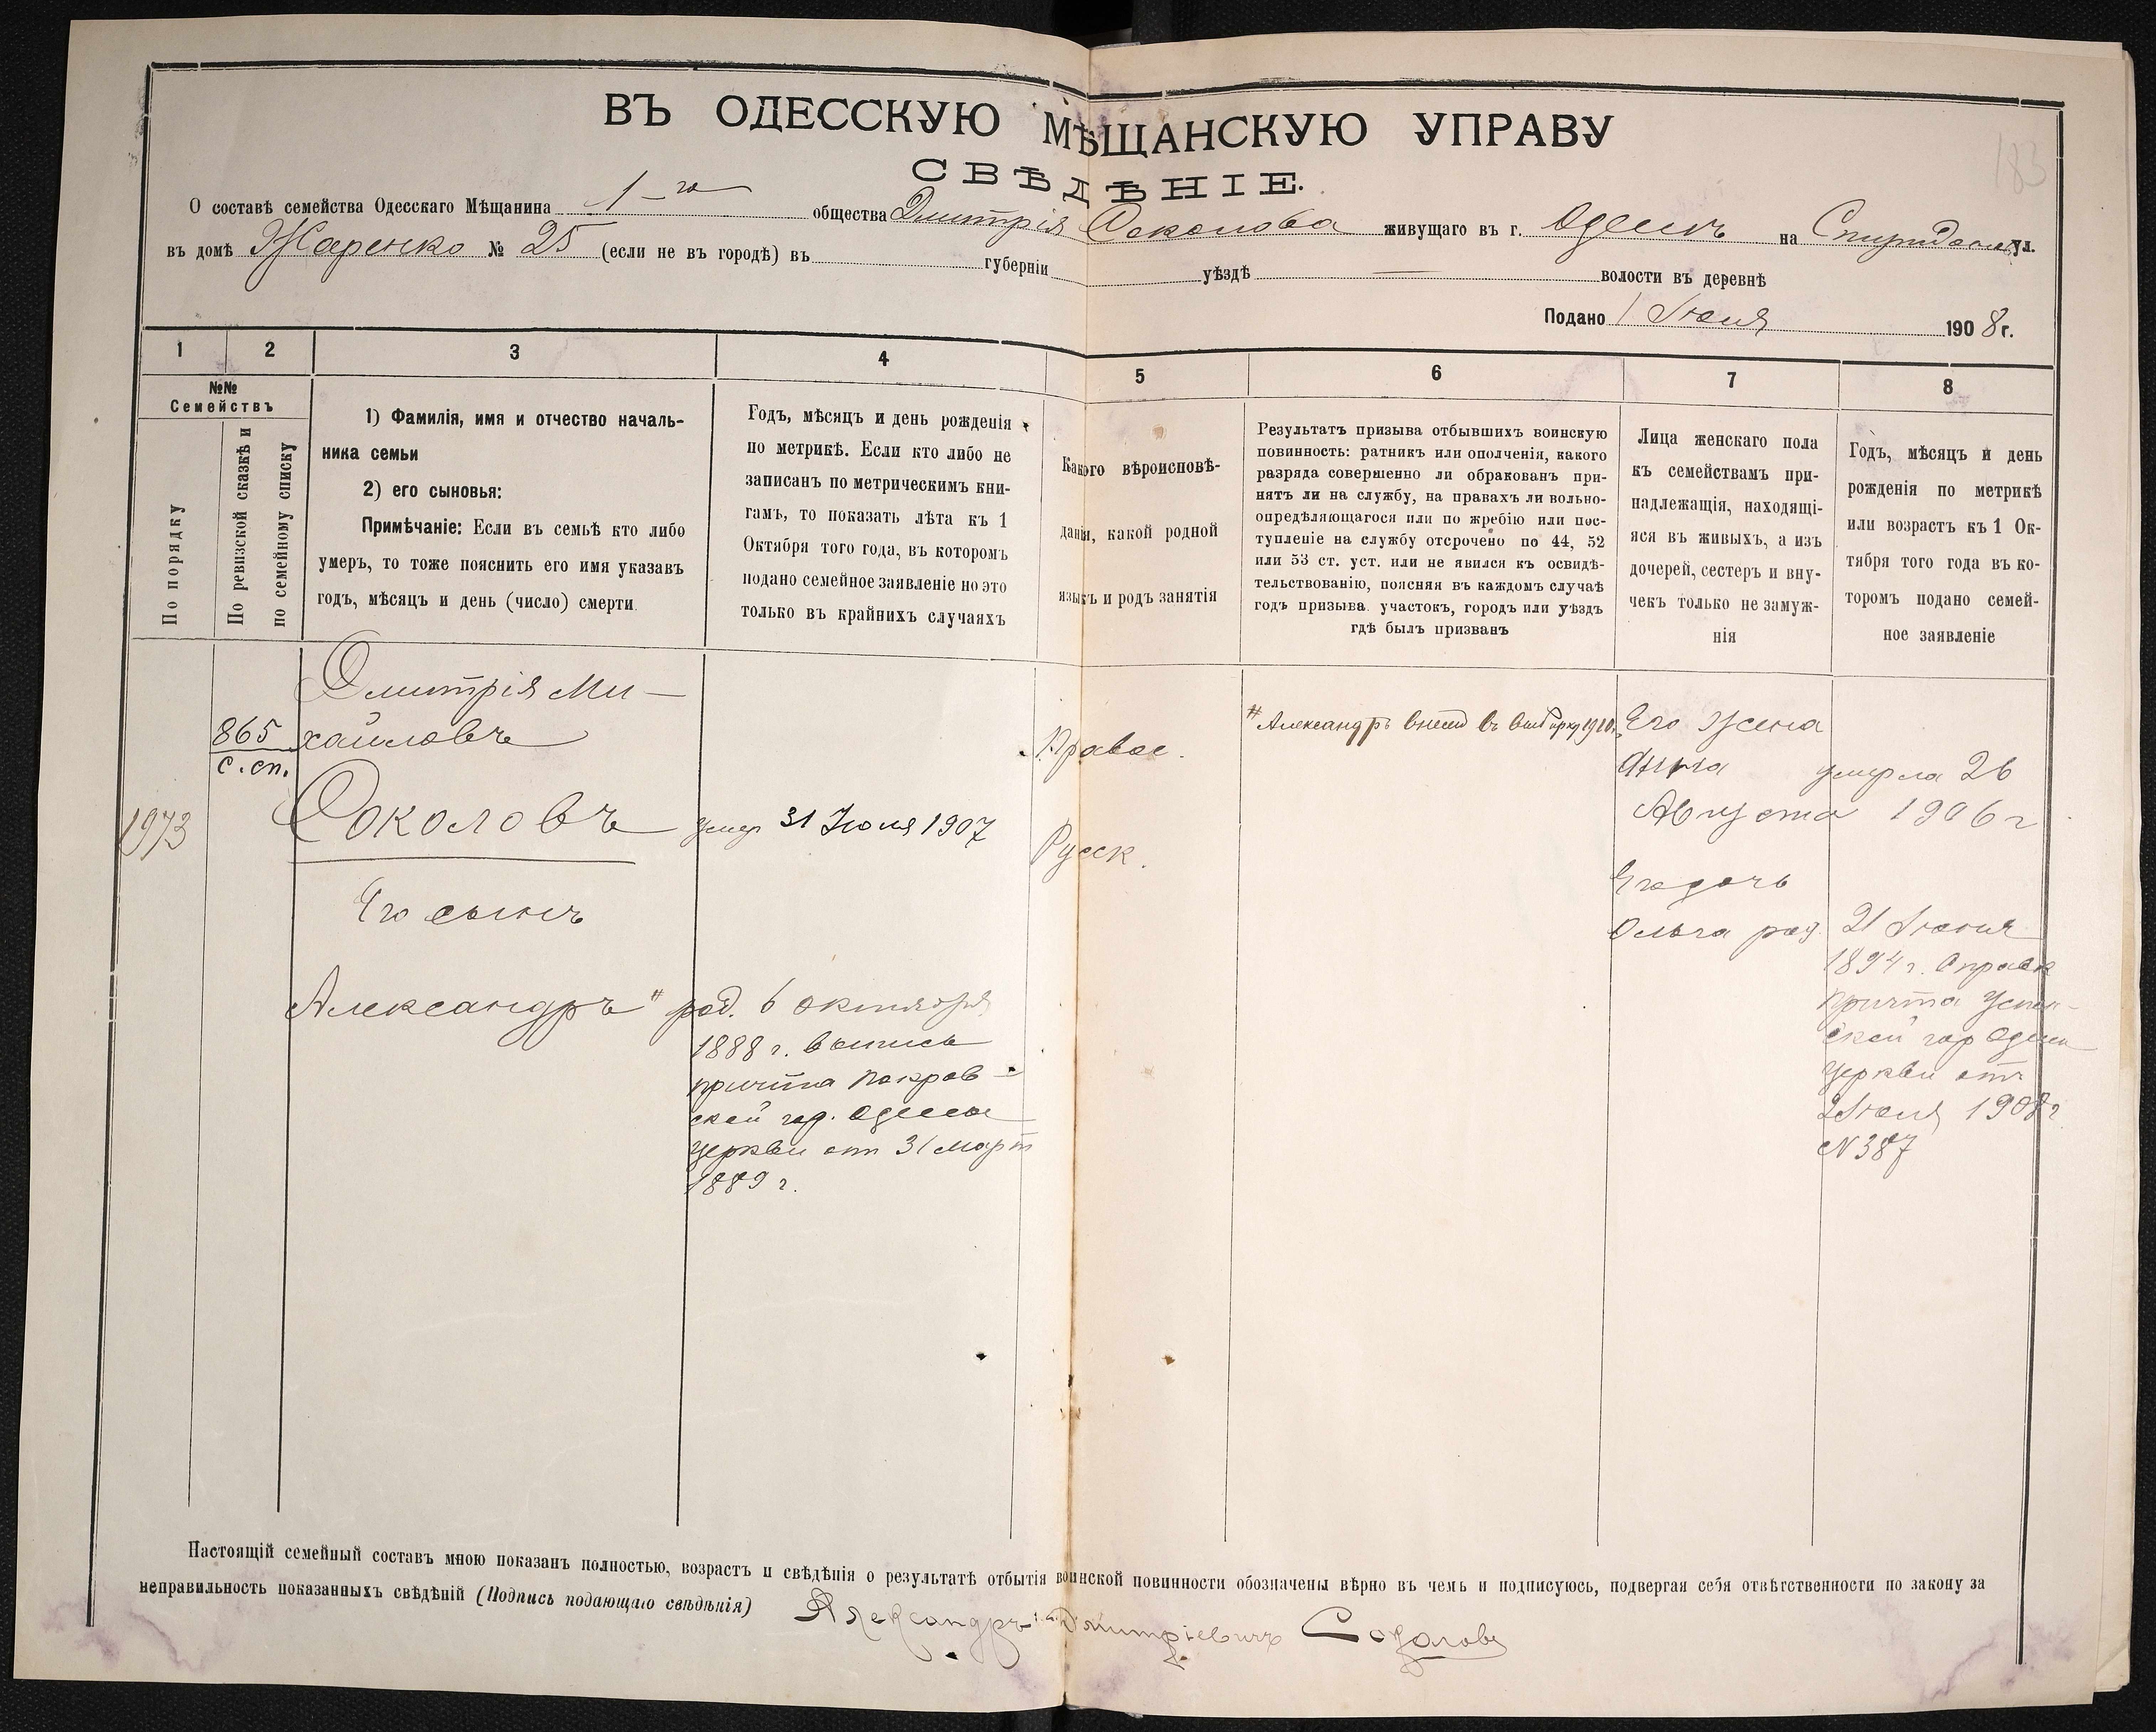 183
ВЪ ОДЕССКУЮ МѢЩАНСКУЮ УПРАВУ
СВѢДѢНІЕ.
О составѣ семейства Одесскаго Мѣщанина 1-го общества Дмитрія Соколова живущаго въ г. Одессѣ на ул.
въ домѣ Жаренко № 25 (если не въ городѣ) въ губерніи уѣздѣ волости въ деревнѣ
Подано 1 Июля 1908 г.
1
2
3
4
5
6
7
8
№№
Семействъ
По порядку
По ревизской сказкѣ и
по семейному списку
1) Фамилія, имя и отчество началь-
ника семьи
2) его сыновья:
Примѣчаніе: Если въ семьѣ кто либо
умеръ, то тоже пояснить его имя указавъ
годъ, мѣсяцъ и день (число) смерти
Годъ, мѣсяцъ и день рожденія
по метрикѣ. Если кто либо не
записанъ по метрическимъ кни-
гамъ, то показать лѣта къ 1
Октября того года, въ которомъ
подано семейное заявленіе но это
только въ крайнихъ случаяхъ
Какого вѣроисповѣ-
данія, какой родной
языкъ и родъ занятія
Результатъ призыва отбывшихъ воинскую
повинность: ратникъ или ополченія, какого
разряда совершенно ли обракованъ при-
нятъ ли на службу, на правахъ ли вольно-
опредѣляющагося или по жребію или пос-
тупленіе на службу отсрочено по 44, 52
или 53 ст. уст. или не явился къ освидѣ-
тельствованію, поясняя въ каждомъ случаѣ
годъ призыва. участокъ, городъ или уѣздъ
гдѣ былъ призванъ
Лица женскаго пола
къ семействамъ при-
надлежащія, находящі-
яся въ живыхъ, а изъ
дочерей, сестеръ и вну-
чекъ только не замуж-
нія
Годъ, мѣсяцъ и день
рожденія по метрикѣ
или возрастъ къ 1 Ок-
тября того года въ ко-
торомъ подано семей-
ное заявленіе
1973
865
с. сп.
Дмитрія Ми-
хайловъ
Соколовъ
Его сынъ
Александръ #
умер 31 Июля 1907
род. 6 октября
1888 г. выпись
причта Покров-
ской гор. Одессы
церкви от 31 март
1889 г.
Правос.
Русск.
# Александръ внесен въ 1910.
Его жена
Анна умерла 26
Августа 1906 г
Его дочь
Ольга род. 21 Июня
1894 г. Справк
причта Успен-
ской гор Одессы
церкви отъ
2 Июля 1908 г
N 387
Настоящій семейный составъ мною показанъ полностью, возрастъ и свѣдѣнія о результатѣ отбытія воинской повинности обозначены вѣрно въ чемъ и подписуюсь, подвергая себя отвѣтственности по закону за
неправильность показанныхъ свѣдѣній (Подпись подающаго свѣдѣнія) Александръ Дмитріевичъ Соколовъ